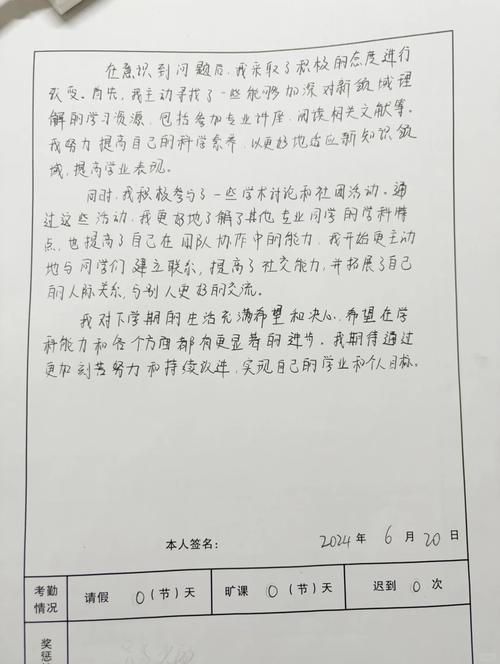 在意识到问题后,我采取了积极的态度进行
改变。首先,我主动寻找了一些能够加深对新领域理
解的学习资源,包括参加专业讲座,阅读相关文献等。
我努力提高自己的科学素养,以更好地适应新知识领
域,提高学业表现。
同时,我积极参与了一些学术讨论和社团活动。通
过这些活动,我更好地了解了其他专业同学的学科特
点,也提高了自己在团队协作中的能力,我开始更主动
地与同学们建立联系,提高了社交能力,并拓展了自己
的人脉关系,与别人更好的交流。
我对下学期的生活充满希望和决心,希望在学
科能力和各个方面都有更显著的进步。我期待通过
更加刻苦努力和持续改进,实现自己的学业和个人目标。
本人签名: 2024 年 6 月 20 日
考勤情况 请假 0(节)天 旷课 0(节)天 迟到 0 次
奖惩